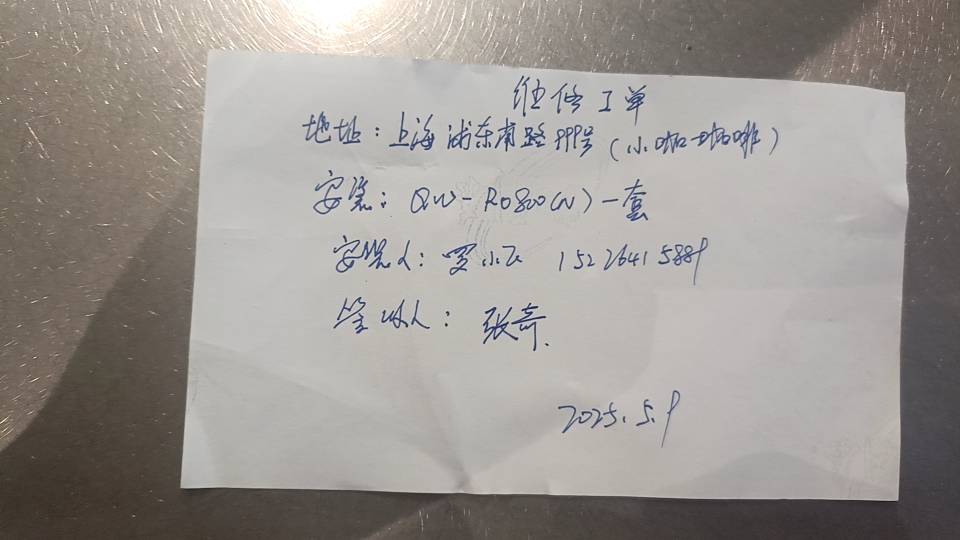 维修工单
地址：上海浦东南路999号（小咖咖啡）
安装：QW-RO800(N)一套
安装人：罗小飞 15226415889
签收人：张奇.
2025.5.9